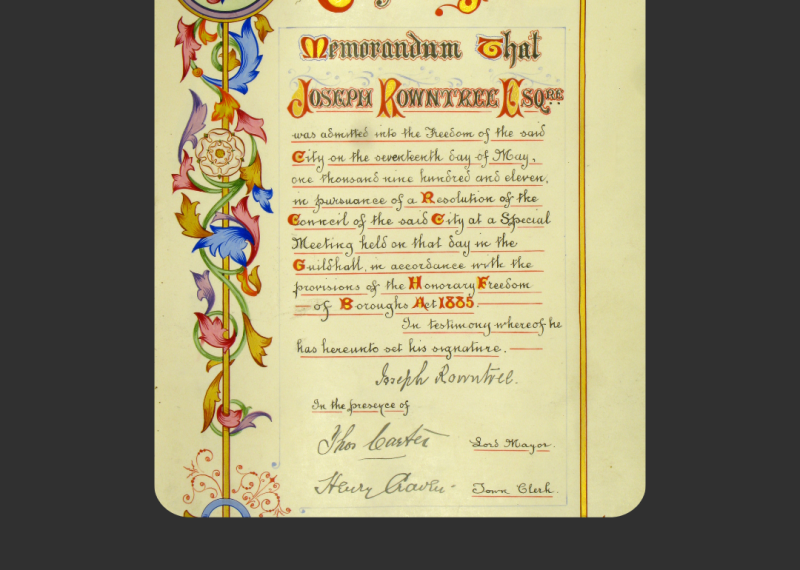 Memorandum That
JOSEPH ROWNTREE ESQRE
was admitted into the Freedom of the said
City on the seventeenth day of May,
one thousand nine hundred and eleven,
in pursuance of a Resolution of the
Council of the said City at a Special
Meeting held on that day in the
Guildhall, in accordance with the
provisions of the Honorary Freedom
of Boroughs Act 1885.
In testimony whereof he
has hereunto set his signature.
Joseph Rowntree.
In the presence of
Thos Carter Lord Mayor.
Henry Craven Town Clerk.